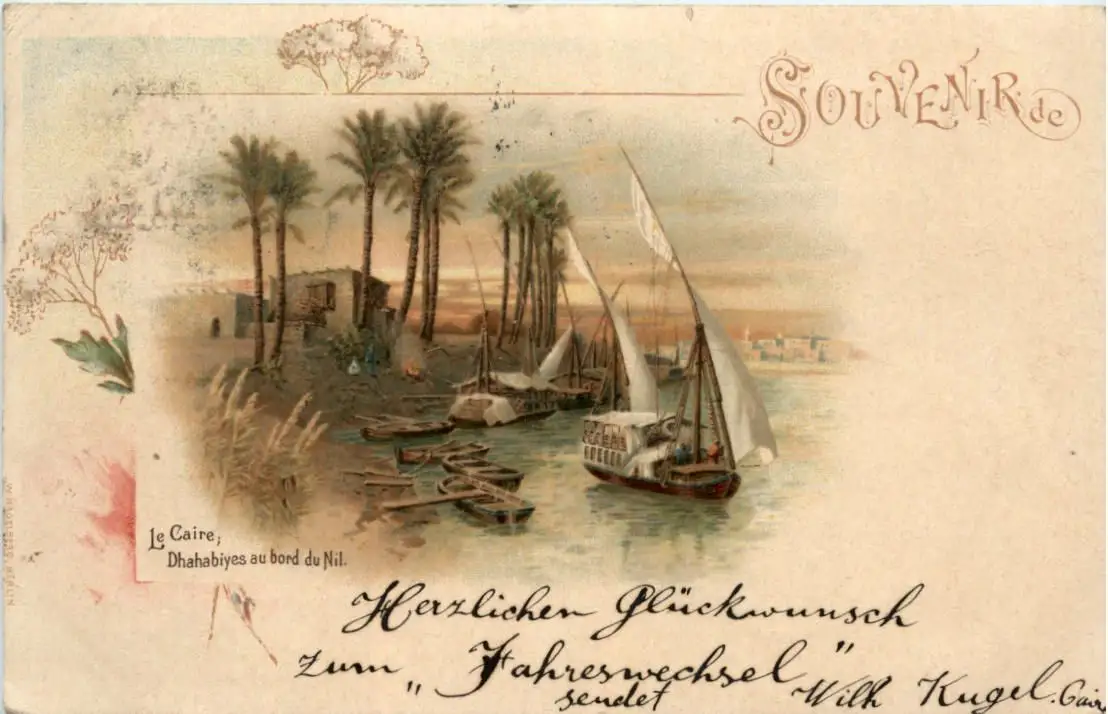 SOUVENIR de
Le Caire;
Dhahabiyes au bord du Nil.
Herzlichen Glückwunsch
zum „Jahreswechsel"
sendet Wilh Kugel. Cairo